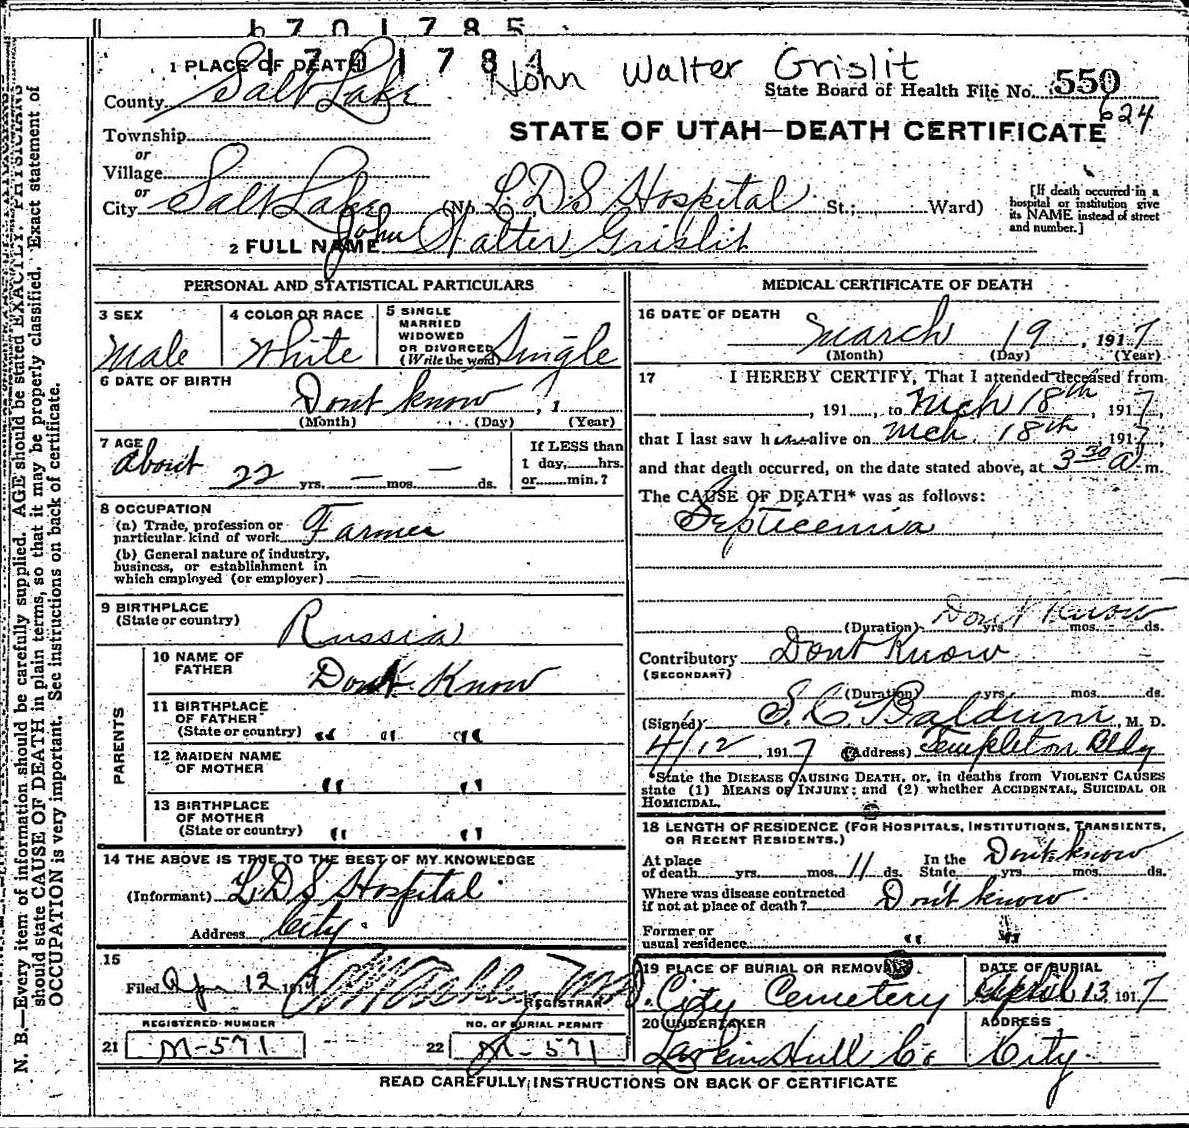 1701785
1701784
John Walter Grislit
1 PLACE OF DEATH
State Board of Health File No. 550
624
County Salt Lake
STATE OF UTAH—DEATH CERTIFICATE
Township
or
Village
or
City Salt Lake (No. L.D.S Hospital St.; Ward)
[If death occurred in a
hospital or institution give
its NAME instead of street
and number.]
2 FULL NAME John Walter Grislit
PERSONAL AND STATISTICAL PARTICULARS
3 SEX
Male
4 COLOR OR RACE
White
5 SINGLE
MARRIED
WIDOWED
OR DIVORCED
(Write the word) Single
6 DATE OF BIRTH
Dont know, 1
(Month) (Day) (Year)
7 AGE
about 22 yrs. — mos. — ds.
If LESS than
1 day, hrs.
or min.?
8 OCCUPATION
(a) Trade, profession or
particular kind of work Farmer
(b) General nature of industry,
business, or establishment in
which employed (or employer)
9 BIRTHPLACE
(State or country) Russia
PARENTS
10 NAME OF
FATHER Dont Know
11 BIRTHPLACE
OF FATHER
(State or country) " " "
12 MAIDEN NAME
OF MOTHER " "
13 BIRTHPLACE
OF MOTHER
(State or country) " "
14 THE ABOVE IS TRUE TO THE BEST OF MY KNOWLEDGE
(Informant) L.D.S Hospital
Address City.
15
Filed Apr 12 1917
REGISTRAR
REGISTERED NUMBER
21 M-571
NO. OF BURIAL PERMIT
22 M-571
MEDICAL CERTIFICATE OF DEATH
16 DATE OF DEATH
March 19, 1917
(Month) (Day) (Year)
17 I HEREBY CERTIFY, That I attended deceased from
, 191 , to Mch 18th, 1917,
that I last saw h alive on Mch. 18th, 1917,
and that death occurred, on the date stated above, at 3 30 a m.
The CAUSE OF DEATH* was as follows:
Septicemia
(Duration) Dont Know yrs. mos. ds.
Contributory Dont Know
(SECONDARY)
(Duration) yrs. mos. ds.
(Signed) S. C. Baldwin, M. D.
4/12, 1917 (Address) Templeton Bldg
*State the DISEASE CAUSING DEATH, or, in deaths from VIOLENT CAUSES
state (1) MEANS OF INJURY; and (2) whether ACCIDENTAL, SUICIDAL OR
HOMICIDAL.
18 LENGTH OF RESIDENCE (FOR HOSPITALS, INSTITUTIONS, TRANSIENTS,
OR RECENT RESIDENTS.)
At place
of death yrs. mos. 11 ds.
In the
State Dont know yrs. mos. ds.
Where was disease contracted
if not at place of death? Don't know.
Former or
usual residence " "
19 PLACE OF BURIAL OR REMOVAL
City Cemetery
DATE OF BURIAL
April 13, 1917
20 UNDERTAKER
Larkin Hull Co
ADDRESS
City
READ CAREFULLY INSTRUCTIONS ON BACK OF CERTIFICATE
N. B.—Every item of information should be carefully supplied. AGE should be stated EXACTLY. PHYSICIANS
should state CAUSE OF DEATH in plain terms, so that it may be properly classified. Exact statement of
OCCUPATION is very important. See instructions on back of certificate.